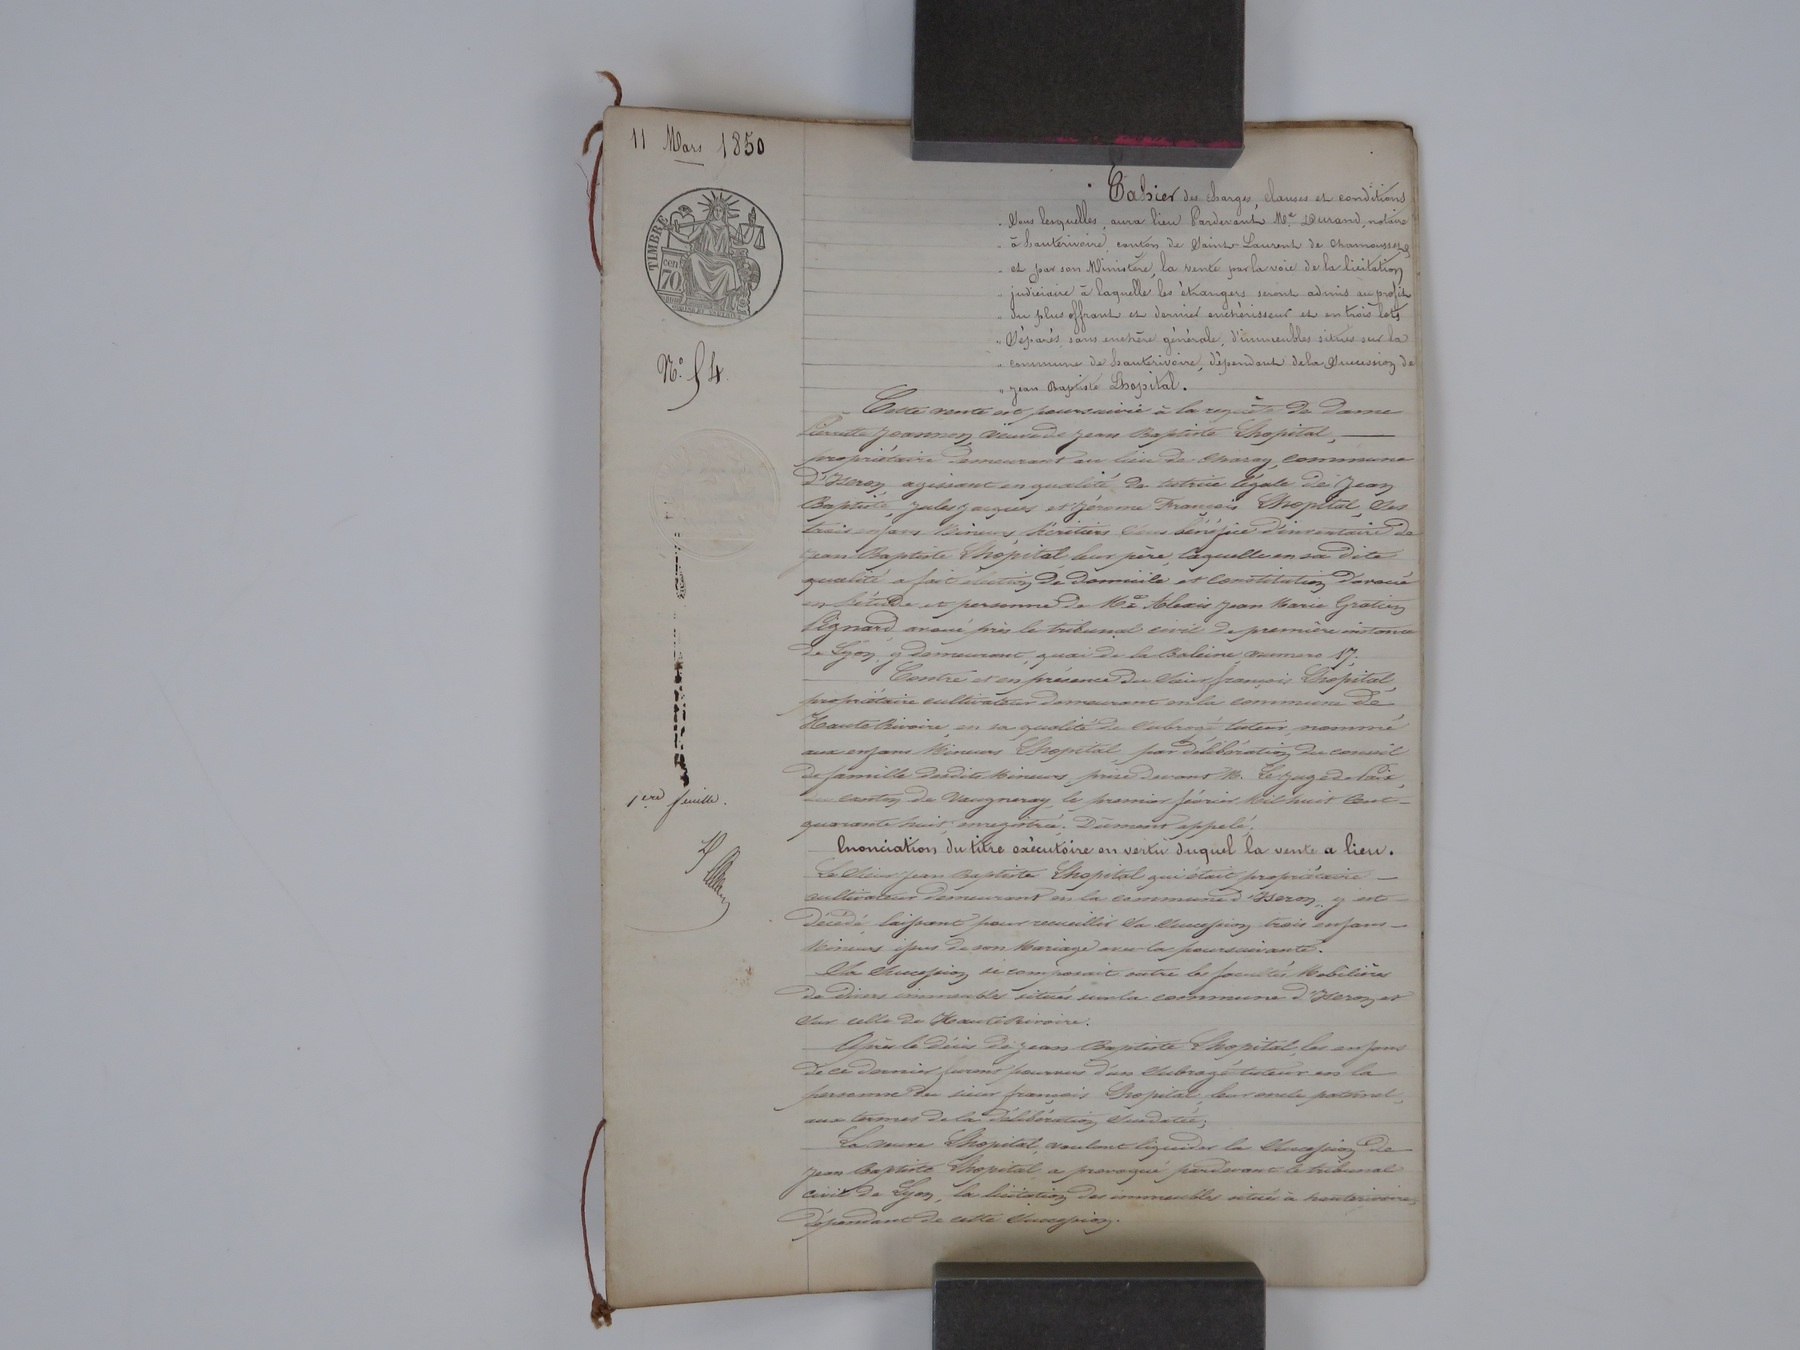 11 Mars 1850
TIMBRE
cen
70.
N.o 54.
1ere feuille.
Cahier des charges, clauses et conditions
Sous lesquelles, aura lieu Pardevant Me. Durand, notaire
à hauterivoire, canton de Saint-Laurent de chamousset
et par son Ministère, la vente par la voie de la licitation
judiciaire à laquelle les étrangers seront admis au profit
du plus offrant et dernier enchérisseur et en trois lots
Séparés, sans enchère générale, d'immeubles situés sur la
commune de hauterivoire, dépendant de la Succession de
jean Baptiste Lhopital.
Cette vente est poursuivie à la requête de Dame
Pierrette Jeannon, veuve de jean Baptiste Lhopital, —
propriétaire demeurant au lieu de , commune
d'Iseron, agissant en qualité de tutrice légale de Jean
Baptiste, Jules Jacques et Jérome François Lhopital, Ses
trois enfans Mineurs héritiers Sous bénéfice d'inventaire de
jean Baptiste Lhôpital leur père, laquelle en sa dite
qualité a fait élection de domicile et Constitution d'avoué
en l'étude et personne de Me Alexis Jean Marie Gratien
Pignard avoué près le tribunal civil de première instance
de Lyon, y demeurant, quai de la Baleine, numero 17.
Contre et en présence du Sieur françois Lhopital,
propriétaire cultivateur demeurant en la commune de
Haute Rivoire, en sa qualité de Subrogé tuteur, nommé
aux enfans Mineurs Lhopital, par délibération du conseil
de famille desdits Mineurs, prise devant M. Le juge de Paix,
du canton de Vaugneray, le premier février Mil huit Cent-
quarante huit, enregistrée. Dûment appelé.
Enonciation du titre exécutoire en vertu duquel la vente a lieu.
Le Sieur Jean Baptiste Lhopital qui était propriétaire —
cultivateur demeurant en la commune d'Iseron, y est —
décédé, laissant pour recueillir Sa Succession trois enfans —
Mineurs issus de son Mariage avec la poursuivante.
Sa Succession se composait outre les facultés Mobilières
de divers immeubles situés sur la commune d'Iseron et
Sur celle de Haute Rivoire.
Après le décès de jean Baptiste Lhopital, les enfans
de ce dernier furent pourvus d'un Subrogé tuteur en la
personne du sieur françois Lhopital, leur oncle paternel,
aux termes de la délibération Susdatée.
La veuve Lhopital, voulant liquider la Succession de
jean Baptiste Lhopital, a provoqué pardevant le tribunal
civil de Lyon, la licitation des immeubles situés à hauterivoire,
dépendant de cette Succession.